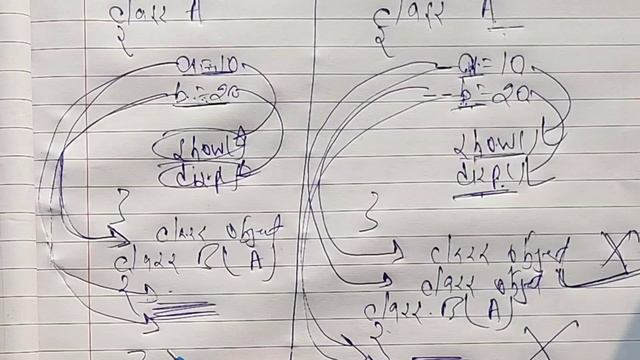 class A
{
a=10
b=20
show()
disp()
}
class object
class B(A)
{
class A
{
--a=10
--b=20
show()
disp()
}
class object X
class object
class B(A)
{
X